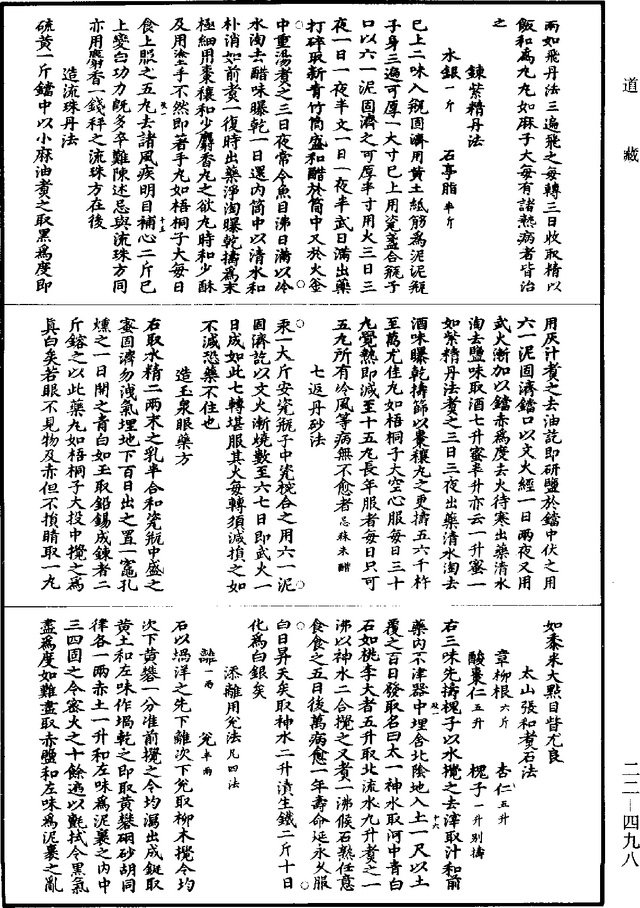 道藏
兩如飛丹法三遍飛之每轉三日收取精以
飯和爲丸丸如麻子大每有諸熱病者皆治
之
鍊紫精丹法
水銀一斤　石亭脂半斤
已上二味入瓶固濟用黃土紙筋爲泥泥瓶
子身三遍可厚一大寸已上用瓷盞合瓶子
口以六一泥固濟之可厚半寸用火三日三
夜一日一夜半文一日一夜半武日滿出藥
打碎取新青竹筒盛和醋於筒中又於火釜
中重湯煮之三日夜常令魚目沸日滿以冷
水淘去醋味曝乾一日還內筒中以清水和
朴消如前煮一復時出藥淨淘曝乾擣爲末
極細用棗穰和少麝香丸之欲丸時和少酥
及用塗手不然即著手丸如梧桐子大每日
食上服之五丸去諸風疾明目補心二斤已
上變白功力既多卒難陳述忌與流珠方同
亦用麝香一錢秤之流珠方在後
造流珠丹法
硫黃一斤鐺中以小麻油煮之取黑爲度即
用灰汁煮之去油訖即研鹽於鐺中伏之用
六一泥固濟鐺口以文火經一日兩夜又用
武火漸加以鐺赤爲度去火待寒出藥清水
淘去鹽味取酒七升蜜半升亦云一升蜜一
如紫精丹法煮之三日三夜出藥清水淘去
酒味曝乾擣篩以棗穰丸之更擣五六千杵
至萬尤佳丸如梧桐子大空心服每日三十
九覺熱即減至十五丸長年服者每日只可
五丸所有冷風等病無不愈者忌蒜米醋
七返丹砂法
汞一大斤安瓷瓶子中瓷椀合之用六一泥
固濟訖以文火漸燒數至六七日即武火一
日成如此七轉堪服其火每轉須減損之如
不減恐藥不住也
造玉泉眼藥方
右取水精二兩末之乳半合和瓷瓶中盛之
蜜固濟勿洩氣埋地下百日出之置一竈孔
燻之一日開之青白如玉取鉛錫成鍊者二
斤鎔之以此藥丸如梧桐子大投中攪之爲
真白矣若眼不見物及赤但不損睛取一丸
如黍米大點目眥尤良
太山張和煮石法
章柳根六斤　杏仁五升
酸棗仁五升　槐子一升別擣
右三味先擣槐子以水攪之去滓取汁和前
藥內不津器中埋舍北陰地入土一尺以土
覆之百日發取名曰太一神水取河中青白
石如桃李大者五升取北流水九升煮之一
沸以神水二合攪之又煮一沸候石熟任意
食食之五日後萬病愈一年壽命延永久服
白日昇天矣取神水二升漬生鐵二斤十日
化爲白銀矣
添離用兊法凡四法
離一兩　兊半兩
石以堝洋之先下離次下兊取柳木攪令均
次下黃礬一分准前攪之令均瀉出成鋌取
黃土和左味作堝乾之即取黃礬硇砂胡同
律各一兩赤土一升和左味爲泥裹之內中
三四固之令密火之十餘遍以氈拭令黑氣
盡爲度如難盡取赤鹽和左味爲泥裹之亂
二二—四九八